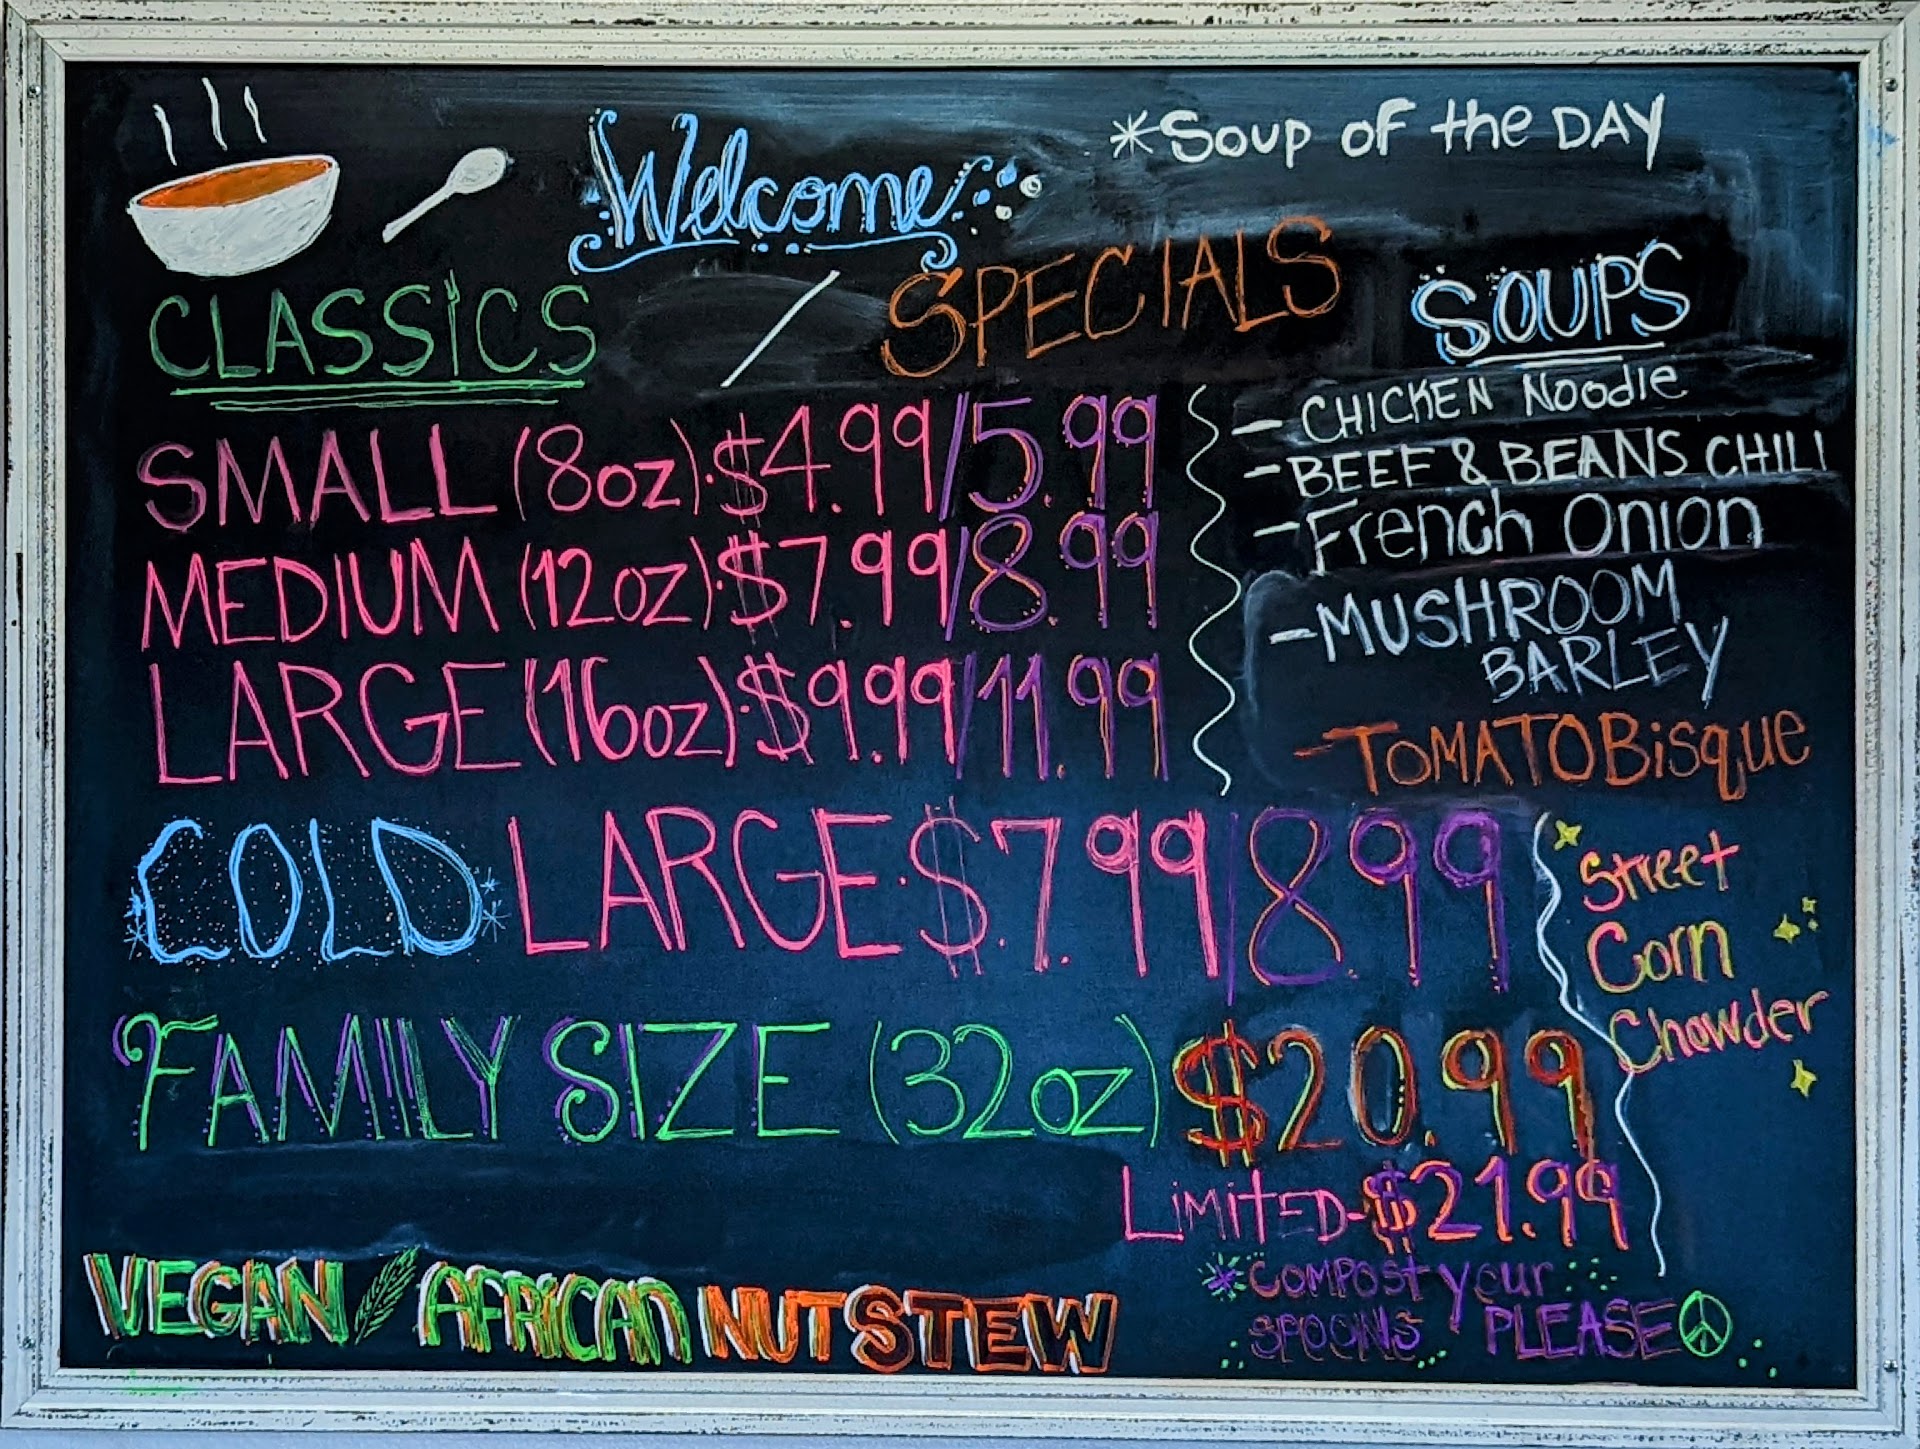 Welcome
*Soup of the DAY
CLASSICS / SPECIALS
SMALL (8oz)·$4.99/5.99
MEDIUM (12oz)·$7.99/8.99
LARGE (16oz)·$9.99/11.99
SOUPS
- CHICKEN Noodle
- BEEF & BEANS CHILI
- French Onion
- MUSHROOM
BARLEY
- TOMATO Bisque
COLD LARGE·$7.99/8.99
Street
Corn
Chowder
FAMILY SIZE (32oz) $20.99
LIMITED-$21.99
VEGAN AFRICAN NUT STEW
*COMPOST your
SPOONS PLEASE